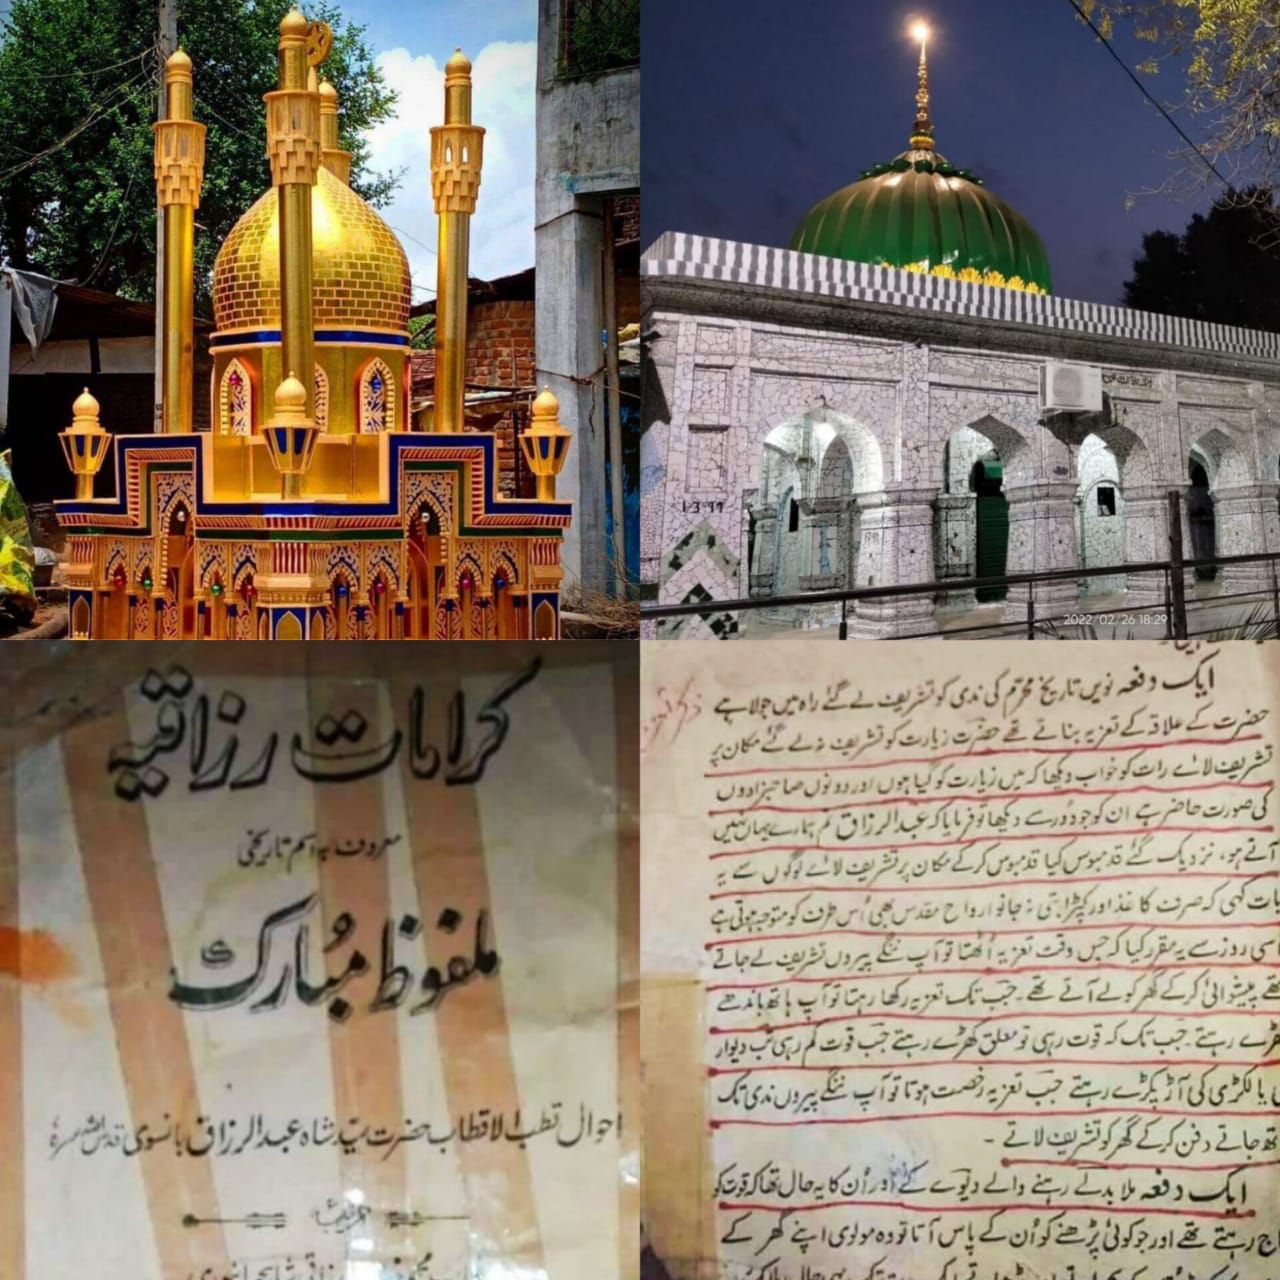 1399
2022/02/26 18:29
کرامات رزاقیہ
معروف بہ اسم تاریخی
ملفوظ مبارک
احوال قطب الاقطاب حضرت سید شاہ عبدالرزاق بانسوی قدس سرہٗ
ایک دفعہ نویں تاریخ محرم کی ندی کو تشریف لے گئے راہ میں جولاہے
حضرت کے علاقہ کے تعزیہ بناتے تھے حضرت زیارت کو تشریف نہ لے گئے مکان پر
تشریف لائے رات کو خواب دیکھا کہ میں زیارت کو گیا ہوں اور دونوں صاحبزادوں
کی صورت حاضر ہے ان کو جو دور سے دیکھا تو فرمایا کہ عبدالرزاق تم ہمارے یہاں نہیں
آتے ہو، نزدیک گئے قدمبوس کیا قدمبوس کرکے مکان پر تشریف لائے لوگوں سے یہ
بات کہی کہ صرف کاغذ اور کپڑا ہی نہ جانو ارواح مقدس بھی اُس طرف کو متوجہ ہوتی ہے
اسی روز سے یہ مقرر کیا کہ جس وقت تعزیہ اُٹھتا تو آپ ننگے پیروں تشریف لے جاتے
تھے پیشوائی کرکے گھر کو لے آتے تھے۔ جب تک تعزیہ رکھا رہتا تو آپ ہاتھ باندھے
کھڑے رہتے۔ جب تک کہ قوت رہی تو معلق کھڑے رہتے جب قوت کم رہی تب دیوار
یا لکڑی کی آڑ پکڑے رہتے جب تعزیہ رخصت ہوتا تو آپ ننگے پیروں ندی تک
ساتھ جاتے دفن کرکے گھر کو تشریف لاتے۔
ایک دفعہ ملا بدکے رہنے والے دیوے کے اور اُن کا یہ حال تھا کہ قوت کو
رہتے تھے اور جو کوئی پڑھنے کو اُن کے پاس آتا تو وہ مولوی اپنے گھر کے